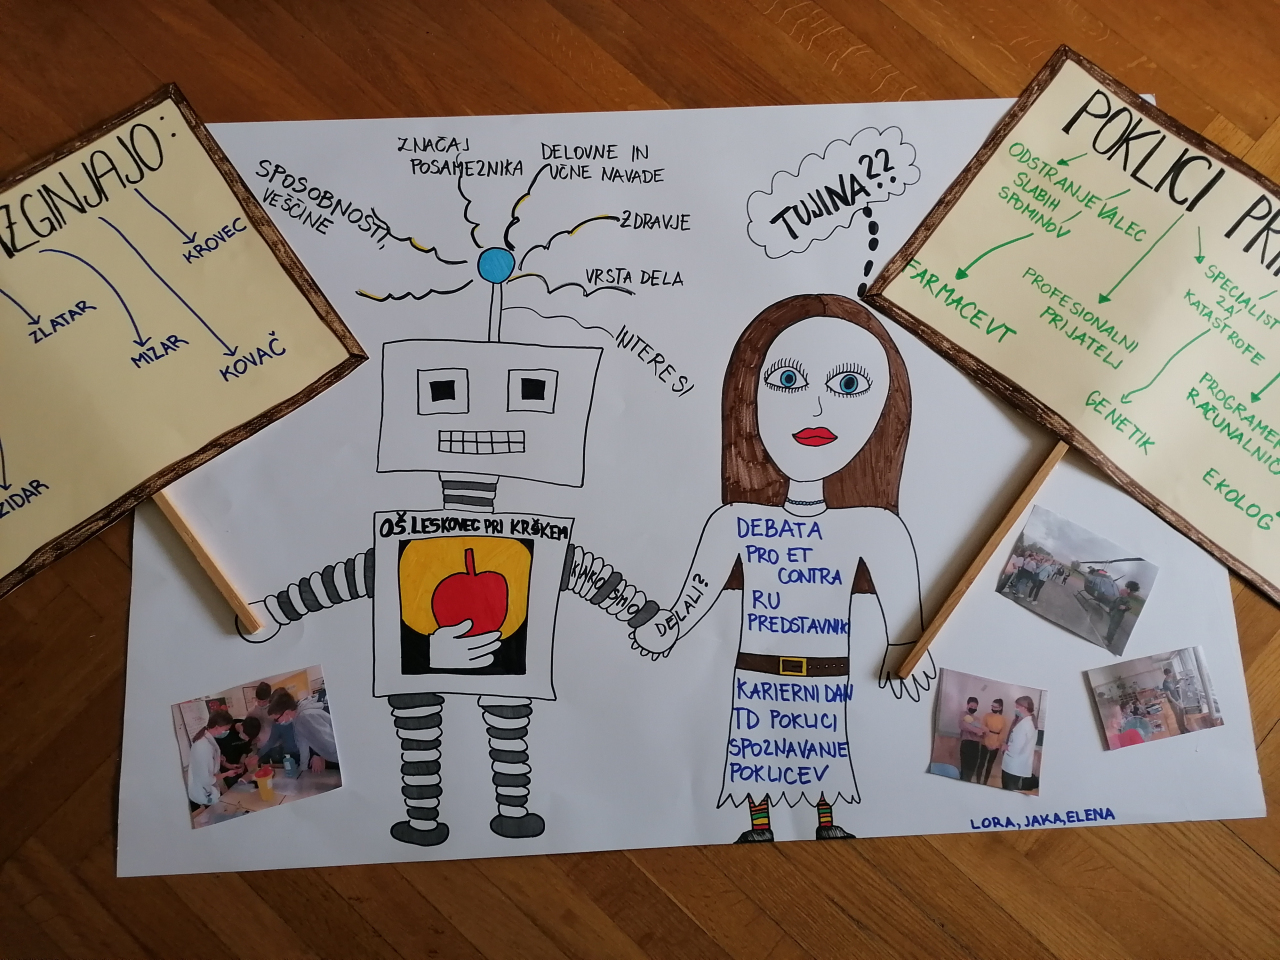 IZGINJAJO:
KROVEC
ZLATAR
MIZAR
KOVAČ
ZIDAR
SPOSOBNOSTI,
VEŠČINE
ZNAČAJ
POSAMEZNIKA
DELOVNE IN
UČNE NAVADE
ZDRAVJE
VRSTA DELA
INTERESI
TUJINA??
OŠ LESKOVEC PRI KRŠKEM
KAKO SMO
DELALI?
DEBATA
PRO ET
CONTRA
RU
PREDSTAVNIK
KARIERNI DAN
TD POKLICI
SPOZNAVANJE
POKLICEV
POKLICI
ODSTRANJEVALEC
SLABIH
SPOMINOV
FARMACEVT
PROFESIONALNI
PRIJATELJ
SPECIALIST
ZA
KATASTROFE
GENETIK
EKOLOG
LORA, JAKA, ELENA